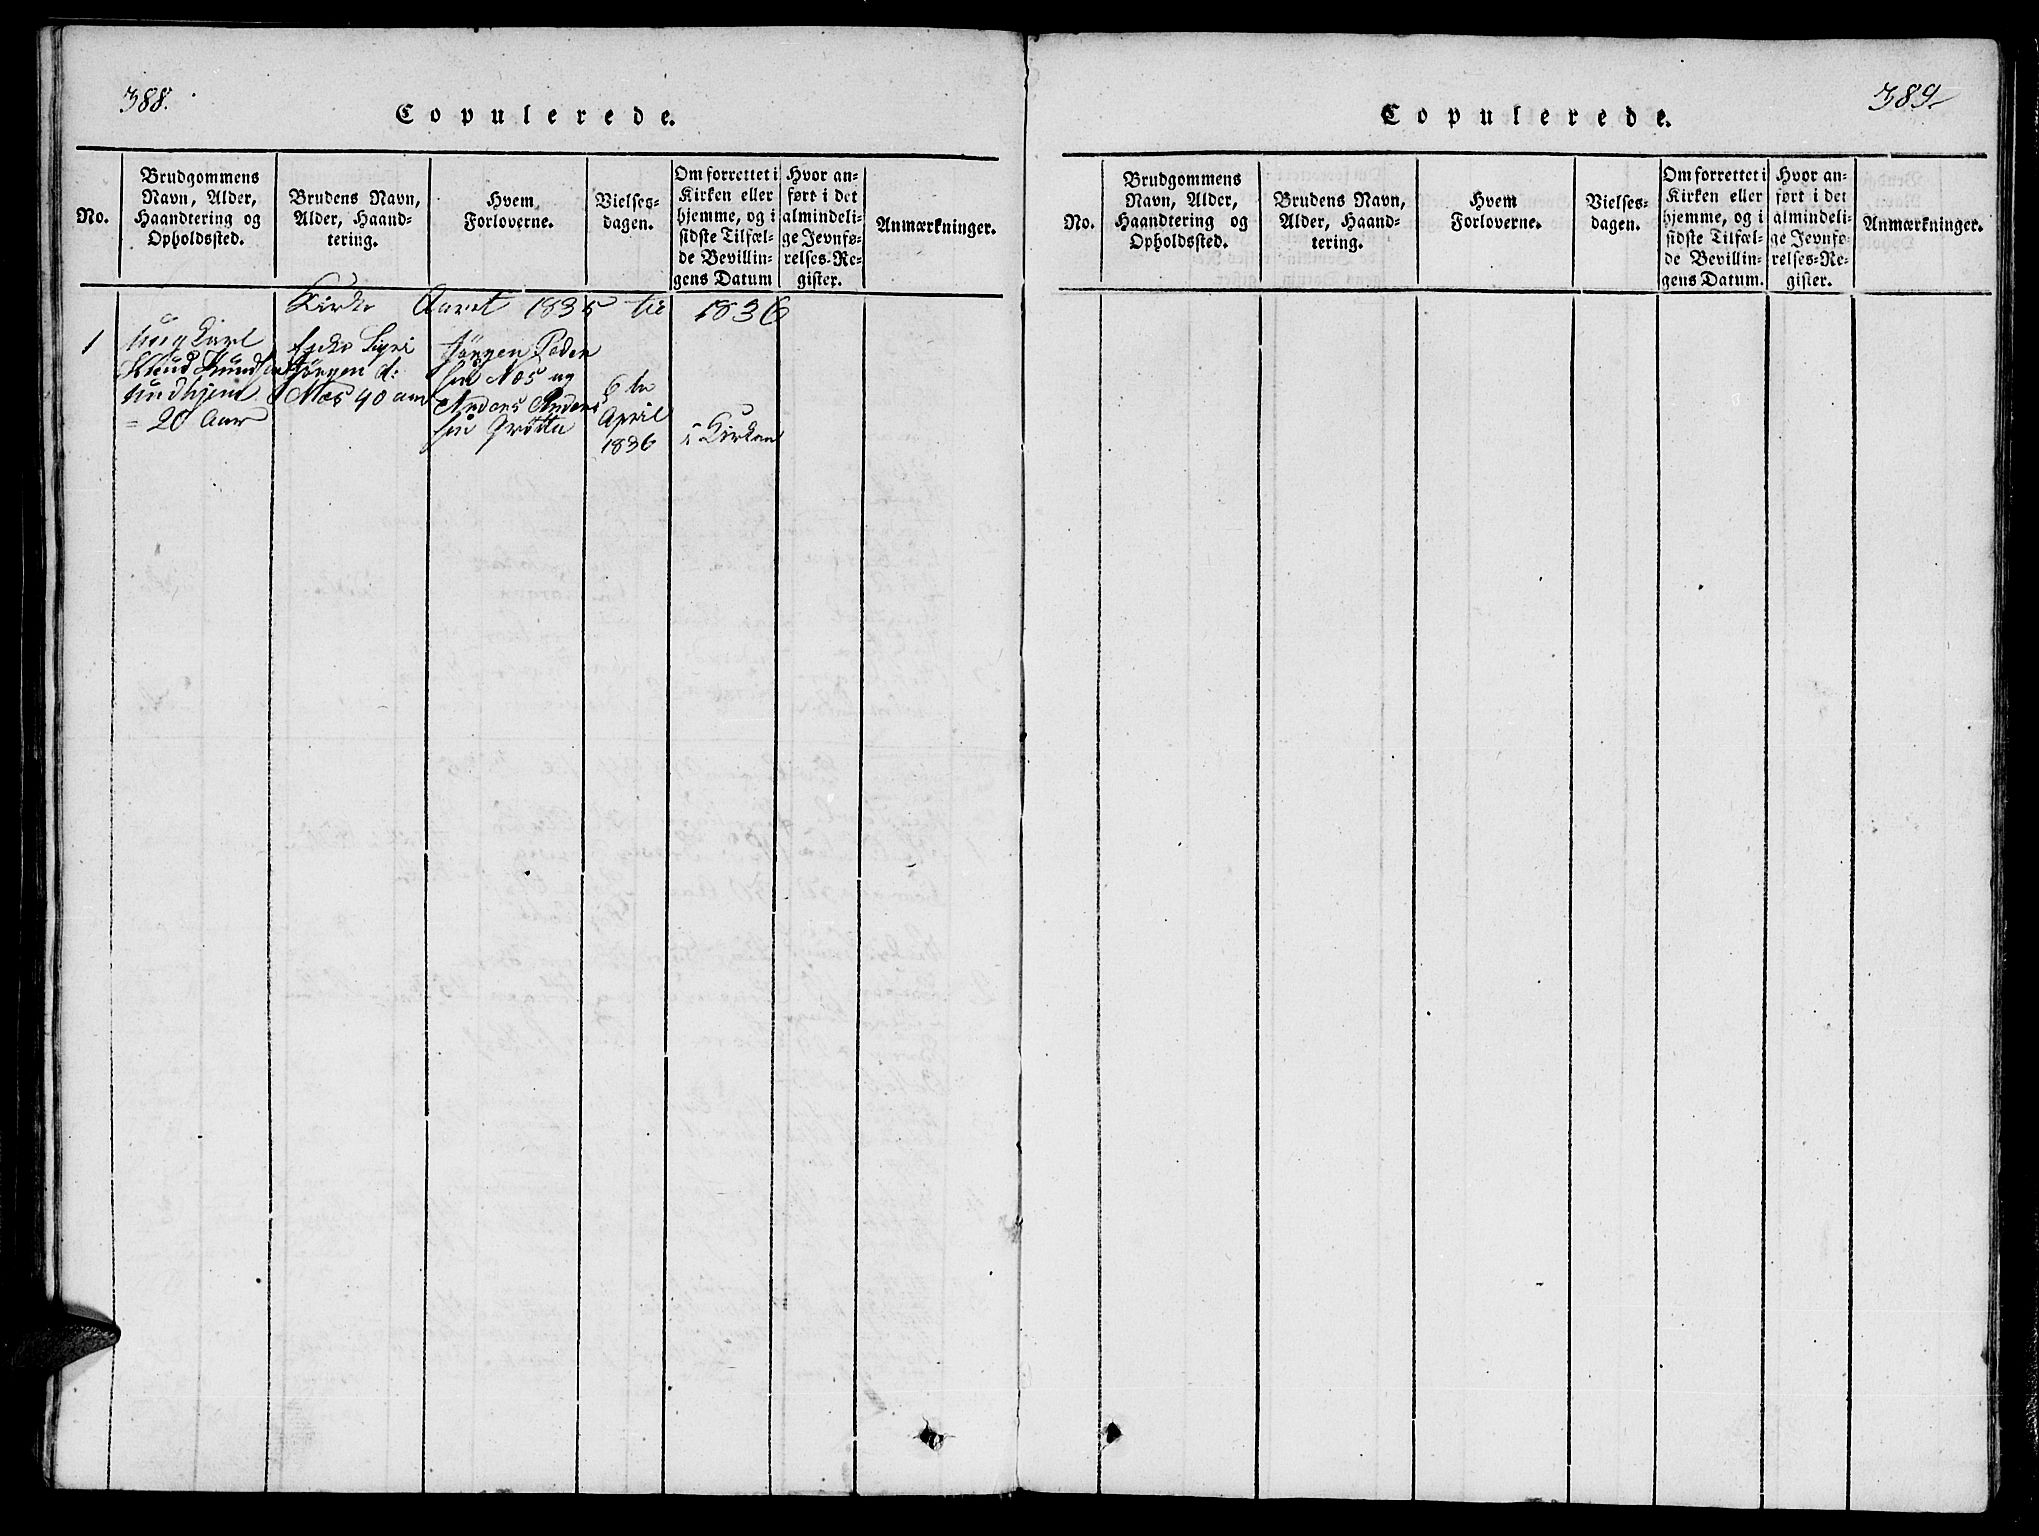 388.
Copulerede.
No.
Brudgommens
Navn, Alder,
Haandtering og
Opholdssted.
Brudens Navn,
Alder, Haand-
tering.
Hvem
Forloverne.
Vielses-
dagen.
Om forrettet i
Kirken eller
hjemme, og i
sidste Tilfæl-
de Bevillin-
gens Datum
Hvor an-
ført i det
almindeli-
ge Jevnfø-
relses-Re-
gister.
Anmærkninger.
Kirke Aaret 1835 til 1836
1
ung Karl
Knud Knudsen
Undhjem
= 20 Aar
Enke Sigri
Jörgen d:
Næs 40 aar
Jörgen Peder
sen Næs og
Anders Anders
sen Grötta
6 te
April
1836
i Kirken
389
Copulerede.
No.
Brudgommens
Navn, Alder,
Haandtering og
Opholdssted.
Brudens Navn,
Alder, Haand-
tering.
Hvem
Forloverne.
Vielses-
dagen.
Om forrettet i
Kirken eller
hjemme, og i
sidste Tilfæl-
de Bevillin-
gens Datum.
Hvor an-
ført i det
almindeli-
ge Jevnfø-
relses-Re-
gister.
Anmærkninger.